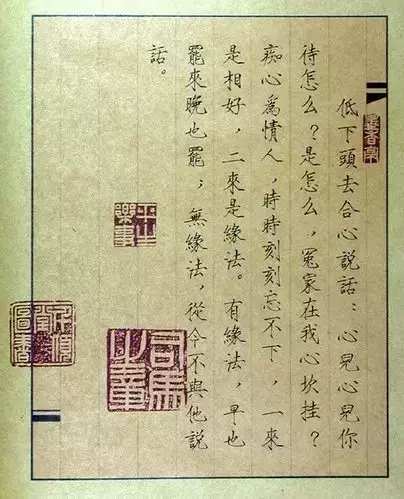 低下頭去合心說話：心兒心兒你
待怎么？是怎么，冤家在我心坎挂？
痴心爲情人，時時刻刻忘不下，一來
是相好，二來是緣法。有緣法，早也
罷來晚也罷；無緣法，從今不與他說
話。
平生樂事
司馬之章
圖書